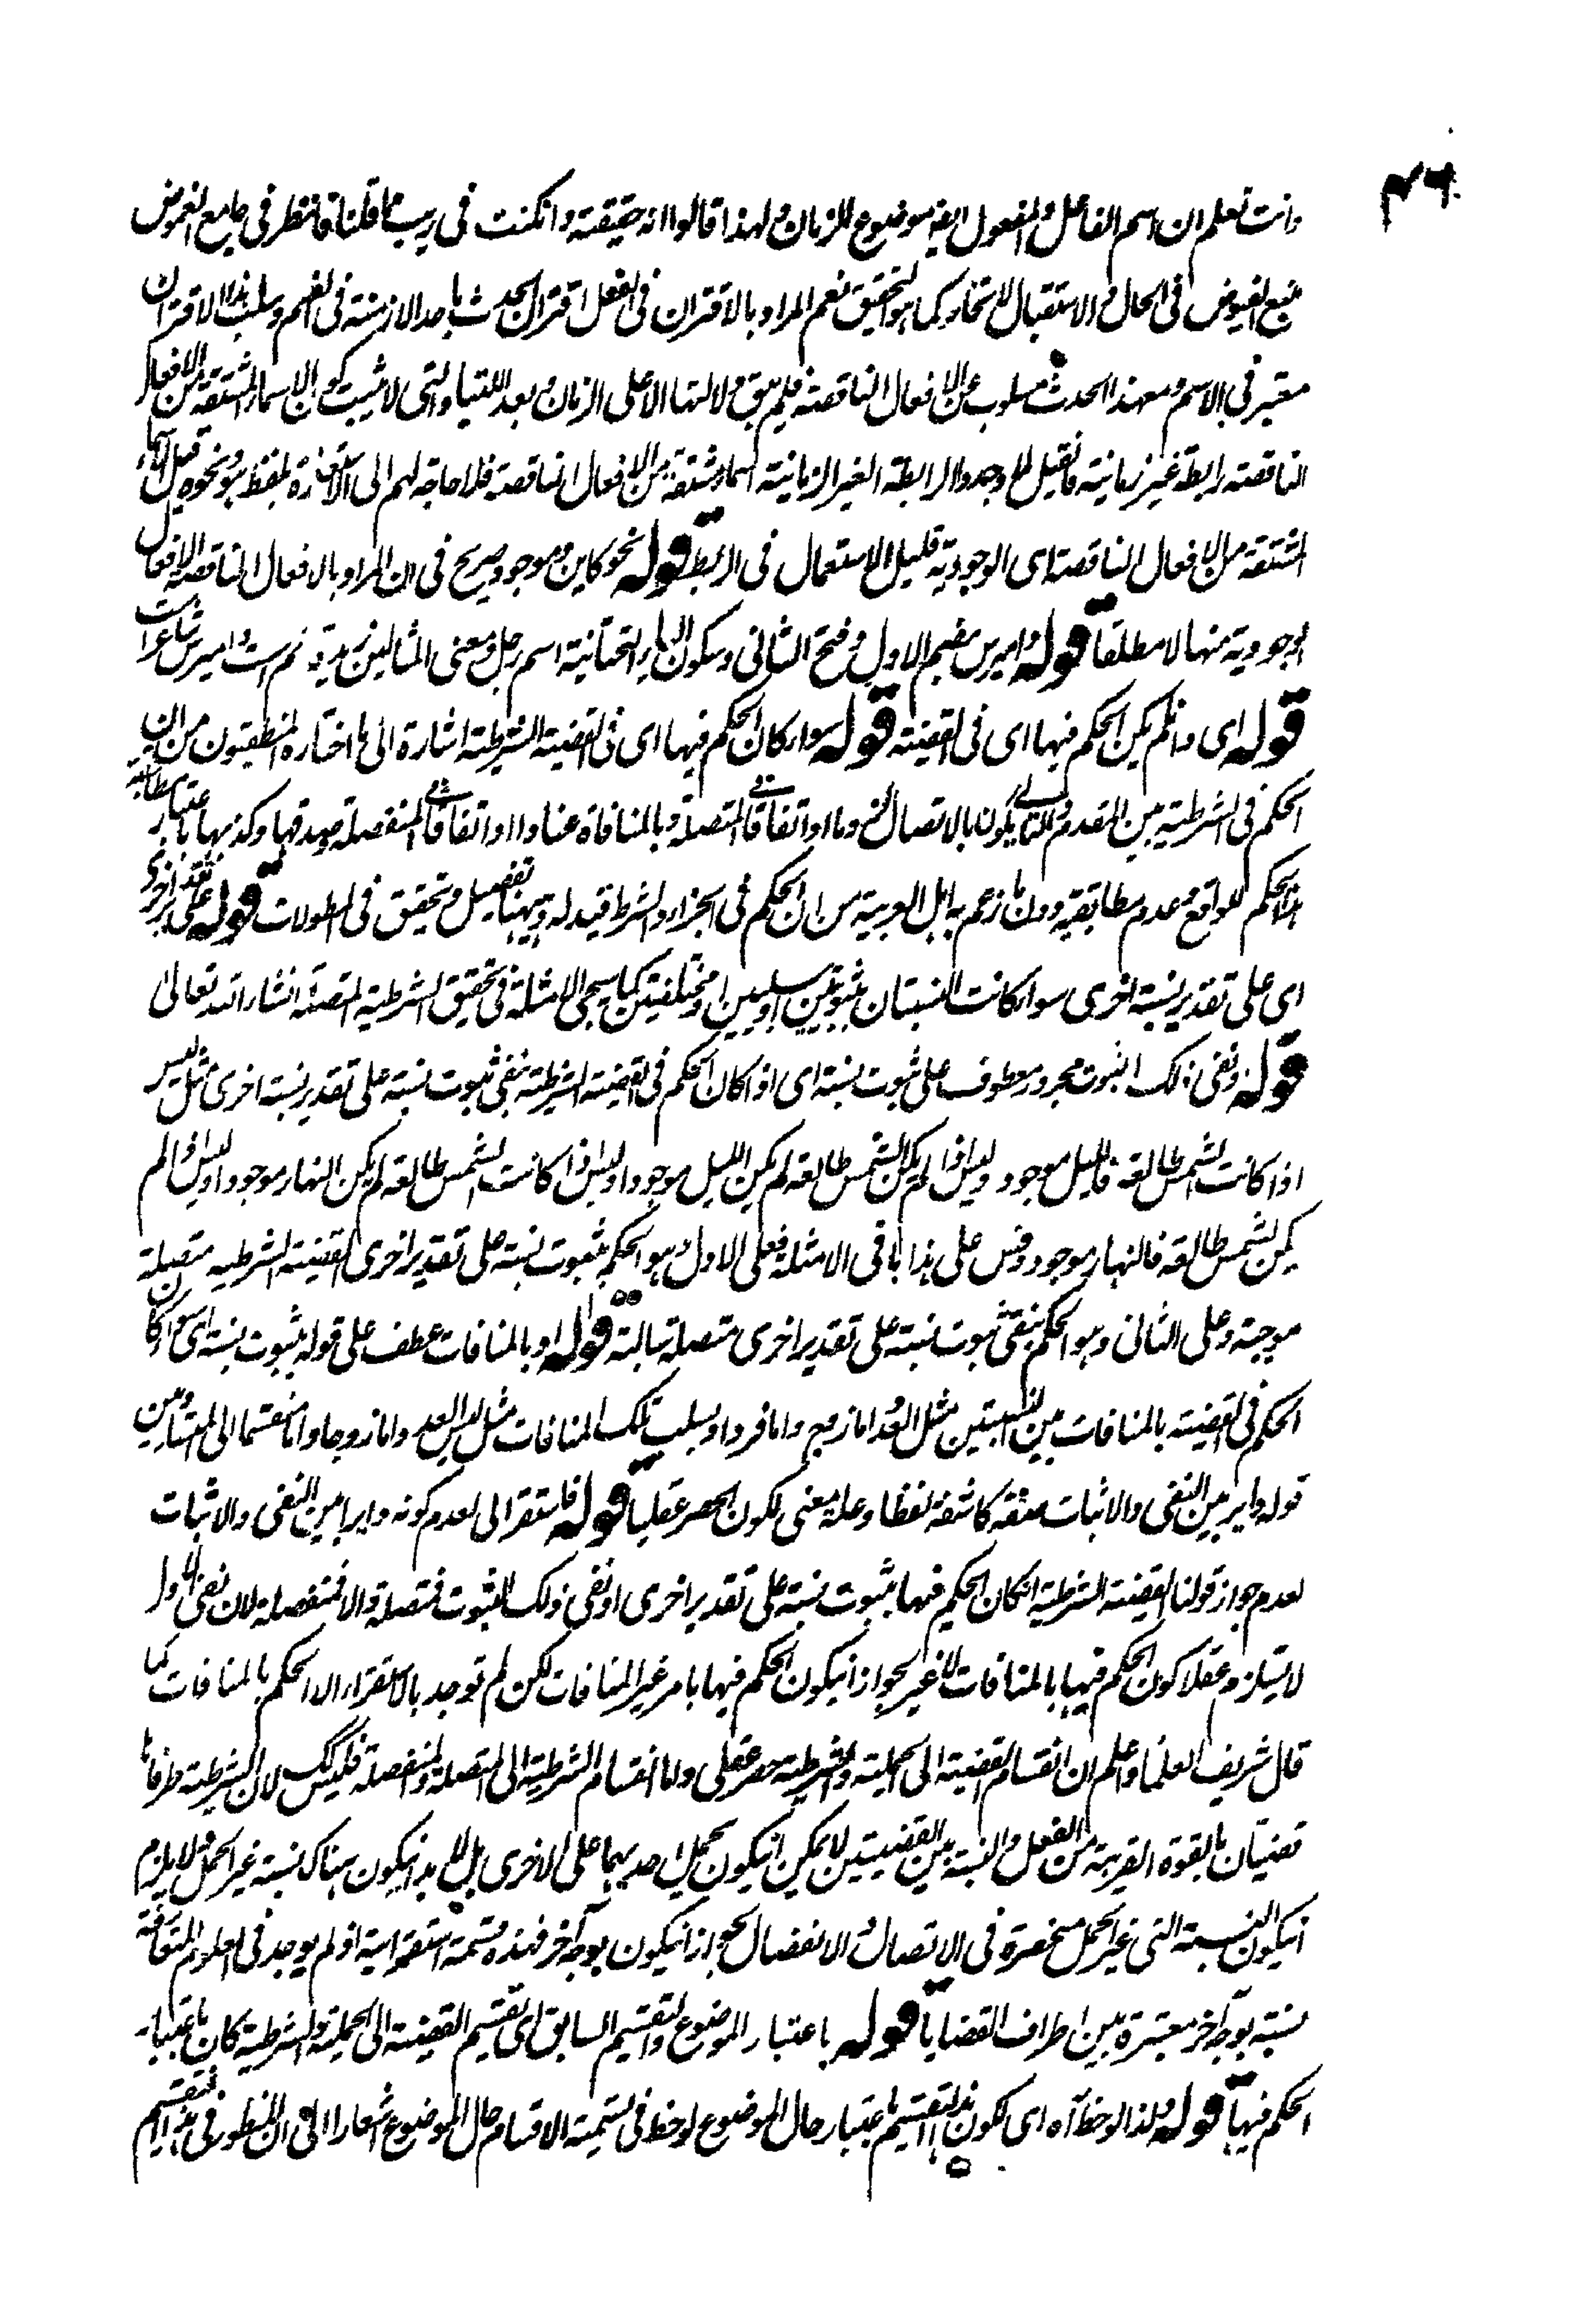 وانت تعلم ان اسم الفاعل والمفعول ايضا موضوع للزمان ولهذا قالوا انه حقيقة وانكنت فى ريب مما قلنا فانظر فى جامع الغموض
منبع الفيوض فى الحال والاستقبال لا تجاوز كما هو التحقيق نعم المراد بالاقتران فى الفعل اقتران الحدث باحد الازمنة فى الفهم وسلب هذا الاقتران
معتبر فى الاسم ومعهذا الحدث مسلوب عن الافعال الناقصة فلم يبق دلالتها الا على الزمان وبعد اللتيا والتى لا يثبت كون الاسماء المشتقة من الافعال
الناقصة رابطة غير زمانية فما قيل وجدوا الرابطة الغير الزمانية اسماء مشتقة من الافعال الناقصة فلا حاجة لهم الى الاستعارة بلفظ هو ونحوه قيل الاسماء
المشتقة من الافعال الناقصة اى الوجودية قليل الاستعمال فى الربط قوله نحو كاين وموجود صريح فى ان المراد بالافعال الناقصة الافعال
الوجودية منها لا مطلقا قوله واميرس بضم الاول وفتح الثانى وسكون الياء التحتانية اسم رجل ومعنى المثالين زيد قائم ست واميرس شاعر است
قوله اى وان لم يكن الحكم فيها اى فى القضية قوله سواء كان الحكم فيها اى فى القضية الشرطية اشارة الى ما اختاره المنطقيون من ان
الحكم فى الشرطية بين المقدم والتالى يكون بالاتصال لزوما او اتفاقا فى المتصلة وبالمنافاة عنادا او اتفاقا فى المنفصلة وصدقها وكذبها باعتبار مطابقة
هذا الحكم للواقع وعدم مطابقته دون ما زعم به اهل العربية من ان الحكم فى الجزاء والشرط قيد له وههنا تفصيل وتحقيق فى المطولات قوله على تقدير اخرى
اى على تقدير نسبة اخرى سواء كانت النسبتان ثبوتيتين او سلبيتين او مختلفتين كما سيجئ الامثلة فى تحقيق الشرطية المتصلة انشاء الله تعالى
قوله ونفى ذلك الثبوت مجرور معطوف على ثبوت نسبة اى اذا كان الحكم فى القضية الشرطية بنفى ثبوت نسبة على تقدير نسبة اخرى مثل ليس
اذا كانت الشمس طالعة فالليل موجود وليس اذا لم يكن الشمس طالعة لم يكن الليل موجودا وليس اذا كانت الشمس طالعة لم يكن النهار موجودا وليس اذا لم
يكن الشمس طالعة فالنهار موجود وقس على هذا باقى الامثلة فعلى الاول وهو الحكم بثبوت نسبة على تقدير اخرى القضية الشرطيه متصلة
موجبة وعلى الثانى وهو الحكم بنفى ثبوت نسبة على تقدير اخرى متصلة سالبة قوله او بالمنافات عطف على قوله بثبوت نسبة اى سواء كان
الحكم فى القضية بالمنافات بين النسبتين مثل العدد اما زوج واما فرد او بسلب تلك المنافات مثل ليس العدد اما زوجا واما منقسما الى المتساويين
قوله داير بين النفى والاثبات صفة كاشفة لفظا وعلة معنى لكون الحصر عقليا قوله فاستقرائى لعدم كونه دايرا بين النفى والاثبات
لعدم جواز قولنا القضية الشرطية ان كان الحكم فيها بثبوت نسبة على تقدير اخرى او نفى ذلك الثبوت فمتصلة والا فمنفصلة لان نفى الاول
لا يستلزم عقلا كون الحكم فيها بالمنافات لا غير لجواز ان يكون الحكم فيها بامر غير المنافات لكن لم توجد بالاستقراء الا الحكم بالمنافات كما
قال شريف العلماء واعلم ان انقسام القضية الى الحملية والشرطية حصر عقلى واما انقسام الشرطية الى المتصلة والمنفصلة فليس كك لان الشرطية طرفاها
قضيتان بالقوة القريبة من الفعل والنسبة بين القضيتين لا يمكن ان يكون بحمل احديهما على الاخرى بل لا بد ان يكون هناك نسبة غير الحمل ولا يلزم
ان يكون النسبة التى غير الحمل منحصرة فى الاتصال والانفصال لجواز ان يكون بوجه آخر فهذه قسمة استقرائية اذ لم يوجد فى العلوم المتعارفة
نسبة بوجه آخر معتبرة بين اطراف القضايا قوله باعتبار الموضوع والتقسيم السابق اى تقسيم القضية الى الحملية والشرطية كان باعتبار
الحكم فيها قوله ولذا لوحظ آه اى لكون هذا التقسيم باعتبار حال الموضوع لوحظ فى تسمية الاقسام حال الموضوع اشعارا الى ان المنظور فى هذا التقسيم